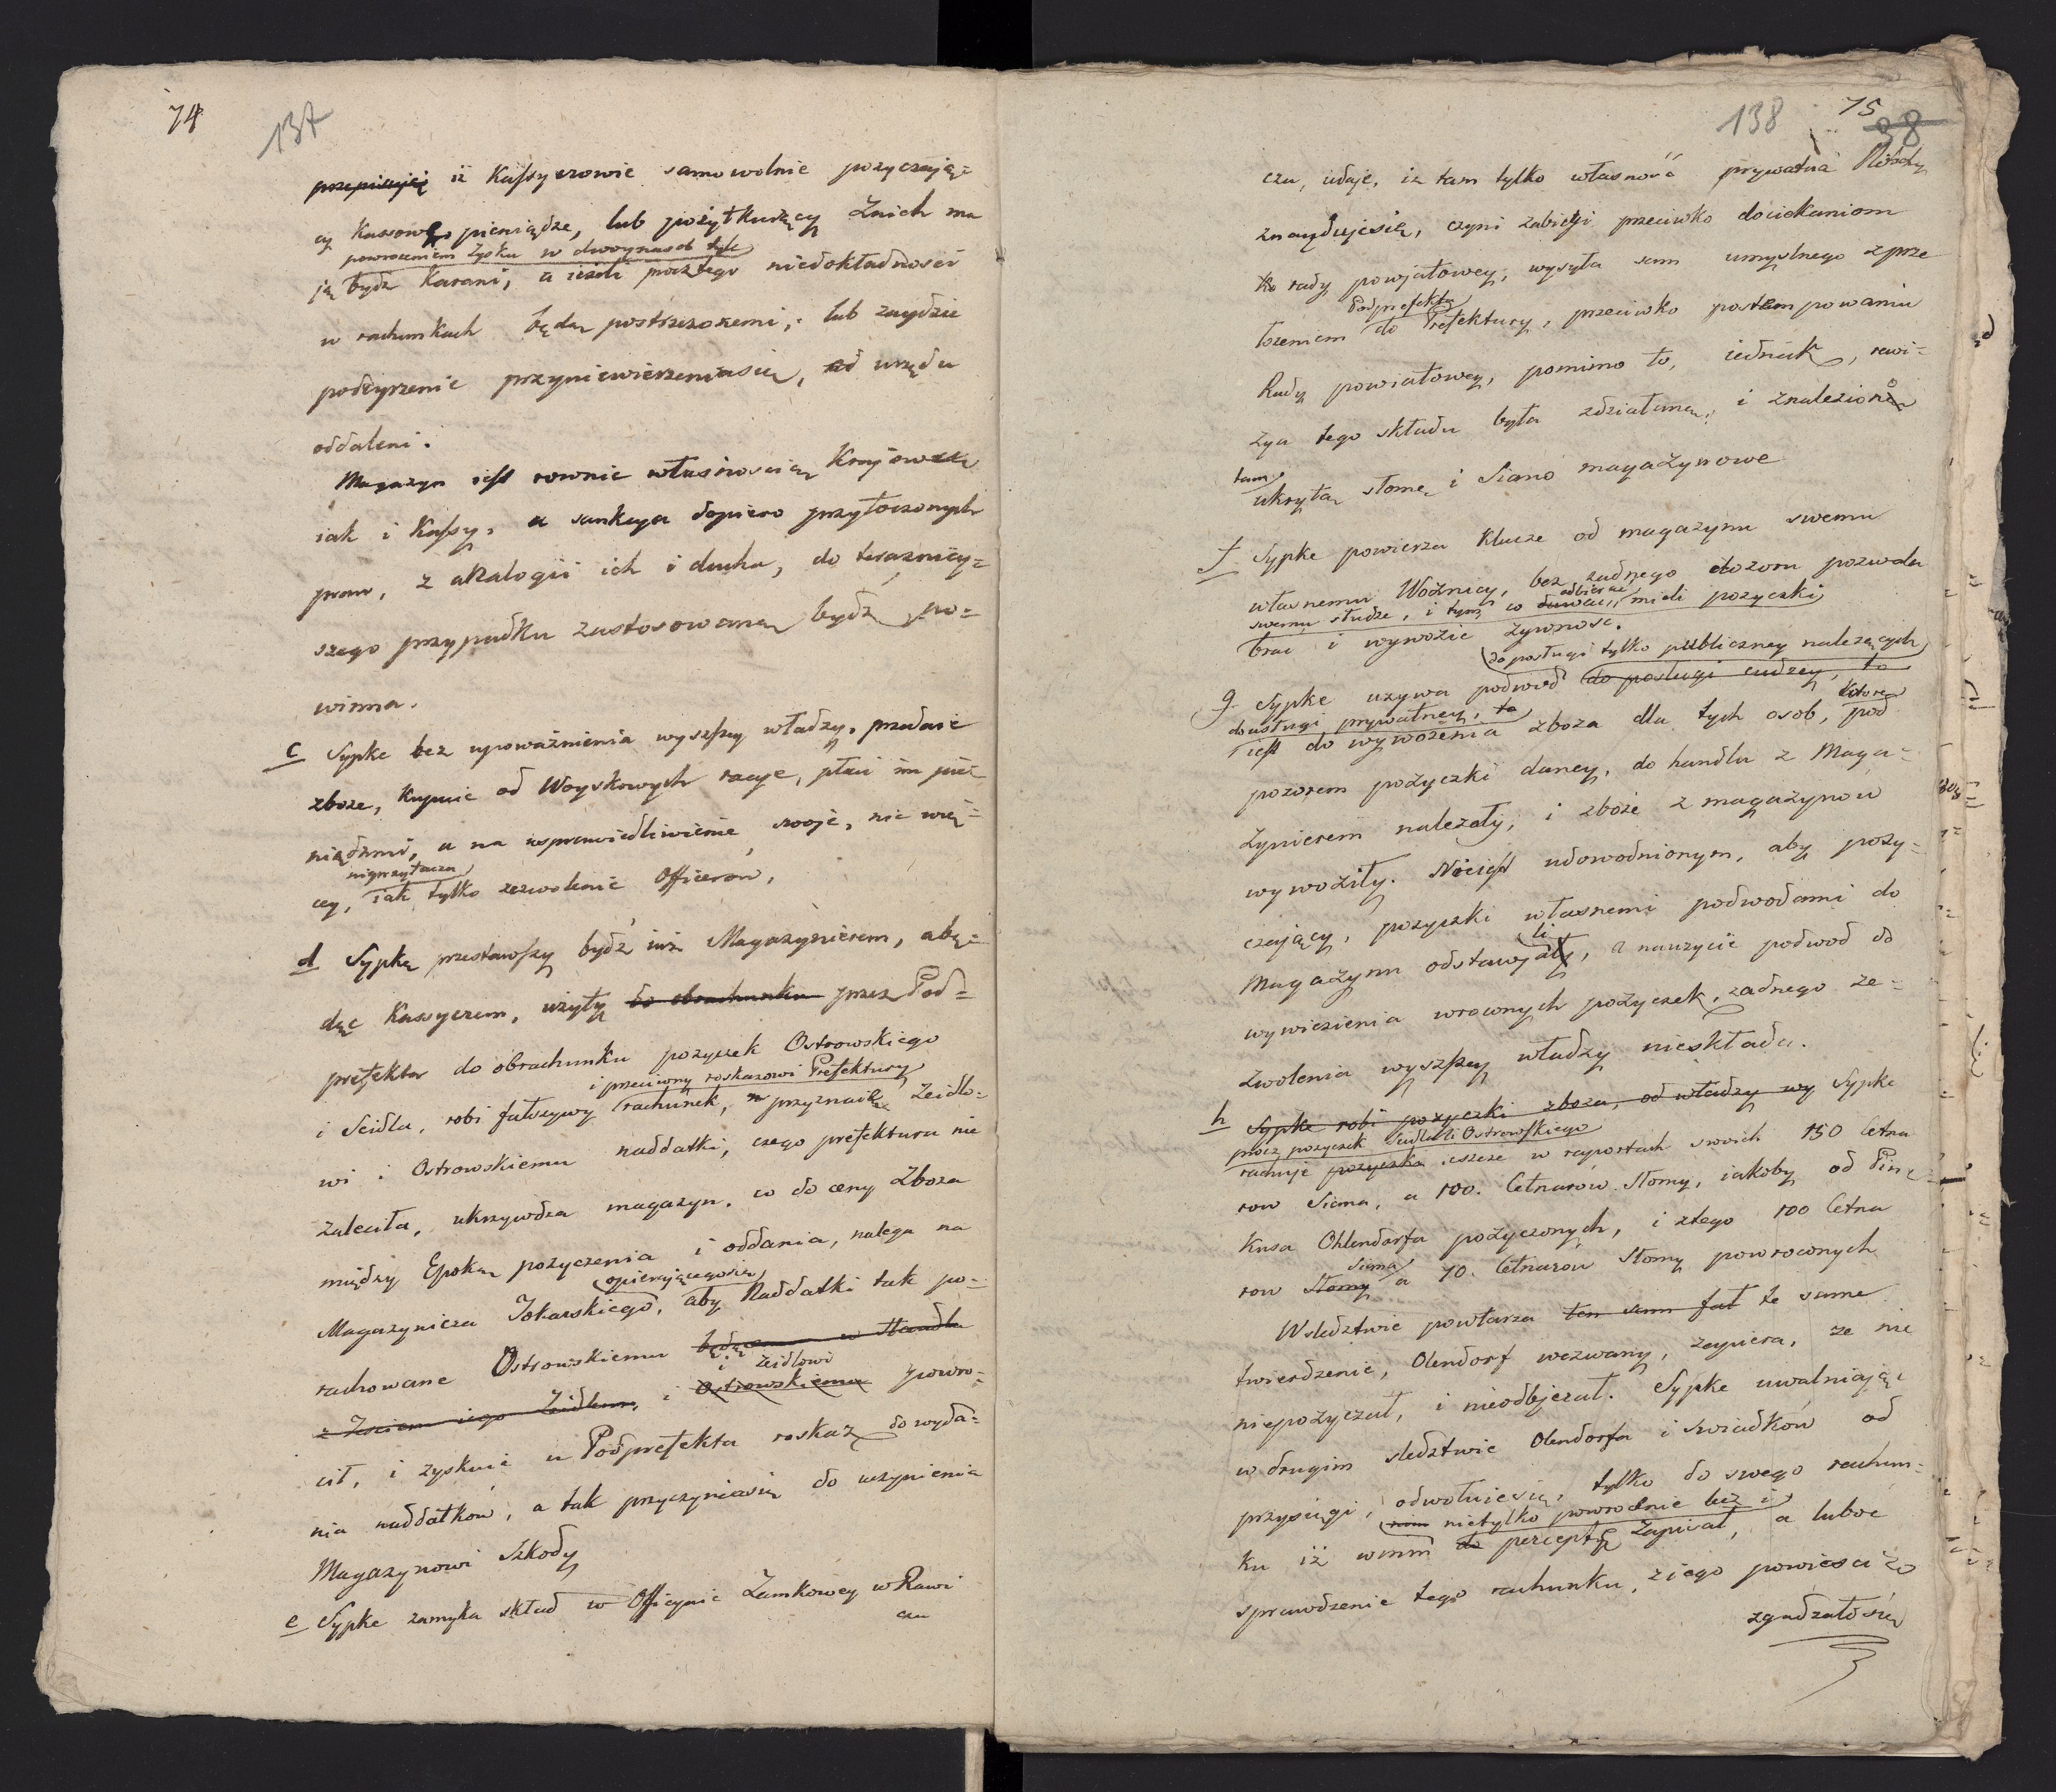 74
137
przepisujej iż Kassyerowie samowolnie pozyczają=
cy Kassowe pieniądze, lub pożytkuiący Znich ma
powroceniem Zysku w dwoynasob tyle
ją bydź Karani, a ieżeli przeztego niedokładności
w rachunkach będą postrzeżonemi, lub zaydzie
podeyrzenie przyniewierzeniasię, od urzędu
oddaleni.
Magazyn iest rownie własnoscią Krajową
iak i Kassy, a sankcya dopiero przytoczonych
praw, z analogii ich i ducha, do terazniey=
szego przypadku zastosowaną bydź po=
winna.
c Sypke bez upoważnienia wyszszey władzy, przedaie
zboże, Kupuie od Woyskowych racye, płaci im pie=
niędzmi, a na usprawiedliwienie swoje, nic wię=
nieprzytacza
cey, iak tylko zezwolenie Officerow,
d Sypke przestawszy bydź iuż Magazynierem, a bę=
dąc Kassyerem, użyty do obrachunku przez Pod=
prefekta do obrachunku pozyczek Ostrowskiego
i przeciwny roskazowi Prefektury
i Seidla, robi fałszywy rachunek, przyznaie Zeidlo=
wi i Ostrowskiemu naddatki, czego prefektura nie
zaleciła, ukrzywdza magazyn, co do ceny Zboza
między Epoką pozyczenia i oddania, nalega na
opierającegosię
Magazyniera Tokarskiego, aby Naddatki tak po=
rachowane Ostrowskiemu będącemu w Handlu
i Zeidlowi
z Zięciem iego Zeidlem, i Ostrowskiemu powro=
cił, i zyskuie u Podprefekta roskaz do wyda=
nia naddatkow, a tak przyczyniasię do uczynienia
Magazynowi Szkody
e Sypke zamyka skład w Officynie Zamkowey w Rawi
cu
138
75
38
czu, udaje, iż tam tylko własność prywatna
znayduiesię, czyni zabiegi przeciwko dociekaniom
rady powjatowey, wysyła sam umyslnego z prze
Podprefekta
łozeniem do Prefektury, przeciwko postempowaniu
Rady powiatowey, pomimo to, iednak, rewi=
zya tego składu była zdziałaną, i znaleziono
tam
ukrytą słomę i Siano magazynowe
f Sypke powierza Klucze od magazynu swemu
własnemu Woźnicy, bez zadnego dozoru pozwala
swemu słudze, i tym co odbierać mieli pozyczki
brać i wywozić zywnosc.
do posługi tylko publiczney nalezących
g. Sypke uzywa podwod do posługi cudzey, to
do usługi prywatney, to Ktore
iest do wywożenia zboza dla tych osob, pod
pozorem pożyczki daney, do handlu z Maga=
zynierem należały, i zboże z magazynow
wywoziły. Nieiest udowodnionym, aby pozy=
czający, pozyczki własnemi podwodami do
li
Magazynu odstawjały, a nauzycie podwod do
wywiezienia wrocnych pożyczek, zadnego ze=
zwolenia wyszszey władzy nieskłada.
h Sypke robi pozyczki zboza, od władzy wy Sypke
procz pozyczek Seidla i Ostrowskiego
rachuje pozyczka ieszcze w raportach swoich 150 Cetna
row Siana, a 100. Cetnarów Słomy, iakoby od Pin
kusa Ohlendorfa pożyczonych, i ztego 100 Cetna
Siana
row Słomy a 70. Cetnarow Słomy powroconych
Wsledztwie powtarza ten sam fał te same
twierdzenie, Olendorf wezwany, zapiera, ze nie
niepożyczał, i nieodbjerał. Sypke uwalniając
w drugim sledztwie Olendorfa i Swiadków od
przysięgi, odwołuiesię, tylko do swego rachun=
nim nietylko powrocenie lecz i
ku iż wnim do perceptę Zapisał, a luboć
sprawdzenie tego rachunku, z iego powiescią
zgadzałosię